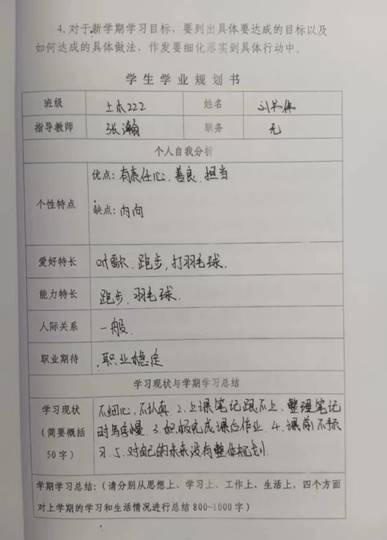 4. 对于新学期学习目标，要列出具体要达成的目标以及
如何达成的具体做法，作发要细化落实到具体行动中。
学生学业规划书
班级 土木222 姓名
指导教师 张瀚 职务 无
个人自我分析
个性特点
优点：有责任心、善良、担当
缺点：内向
爱好特长 跑步，打羽毛球.
能力特长 跑步、羽毛球.
人际关系 一般.
职业期待 职业稳定
学习现状与学期学习总结
学习现状
（简要概括
50 字）
不细心，不认真 2.上课笔记跟不上，整理笔记
时写字慢 3.积极完成课后作业 4.课前不预
习 5.对自己的未来没有整体规划.
学期学习总结：（请分别从思想上、学习上、工作上、生活上，四个方面
对上学期的学习和生活情况进行总结 800-1000 字）